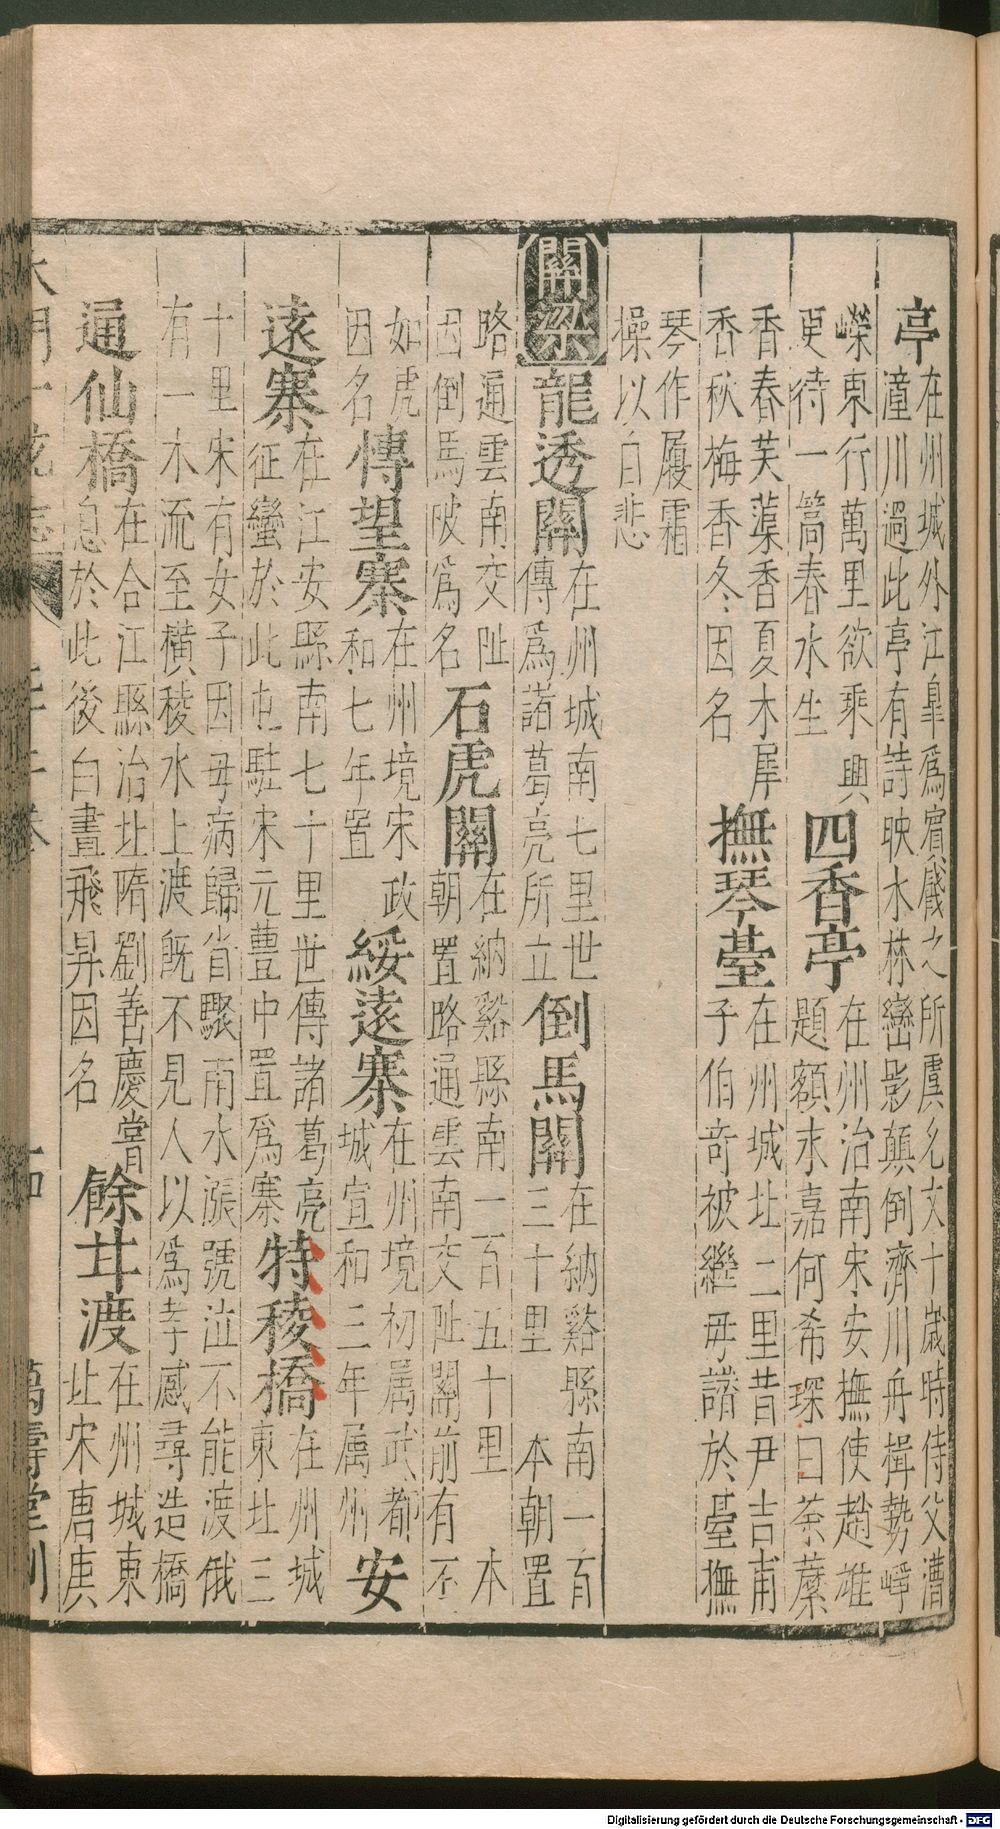 亭在州城外江臯爲賓餞之所虞允文十歲時侍父漕
潼川過此亭有詩映水林巒影顛倒濟川舟楫勢崢
嶸東行萬里欲乘興
更待一篙春水生
四香亭在州治南宋安撫使趙雄
題額末嘉何希琛曰荼䕷
香春芙蕖香夏木犀
香秋梅香冬因名
撫琴臺在州城北二里昔尹吉甫
子伯奇被繼母譖於臺撫
琴作履霜
操以自悲
關梁
龍透關在州城南七里世
傳爲諸葛亮所立
倒馬關在納谿縣南一百
三十里 本朝置
路通雲南交阯
因倒馬坡爲名
石虎關在納谿縣南一百五十里 本
朝置路通雲南交阯關前有石
如虎
因名
博望寨在州境宋政
和七年置
綏遠寨在州境初属武都
城宣和三年属州
安
遠寨在江安縣南七十里世傳諸葛亮
征蠻於此屯駐宋元豐中置爲寨
特稜橋在州城
東北三
十里宋有女子因母病歸省驟雨水漲號泣不能渡俄
有一木流至横稜水上渡旣不見人以爲孝感尋造橋
通仙橋在合江縣治北隋劉善慶嘗
息於此後白晝飛昇因名
餘甘渡在州城東
北宋唐庚
大明一統志
萬壽堂刊
Digitalisierung gefördert durch die Deutsche Forschungsgemeinschaft - DFG